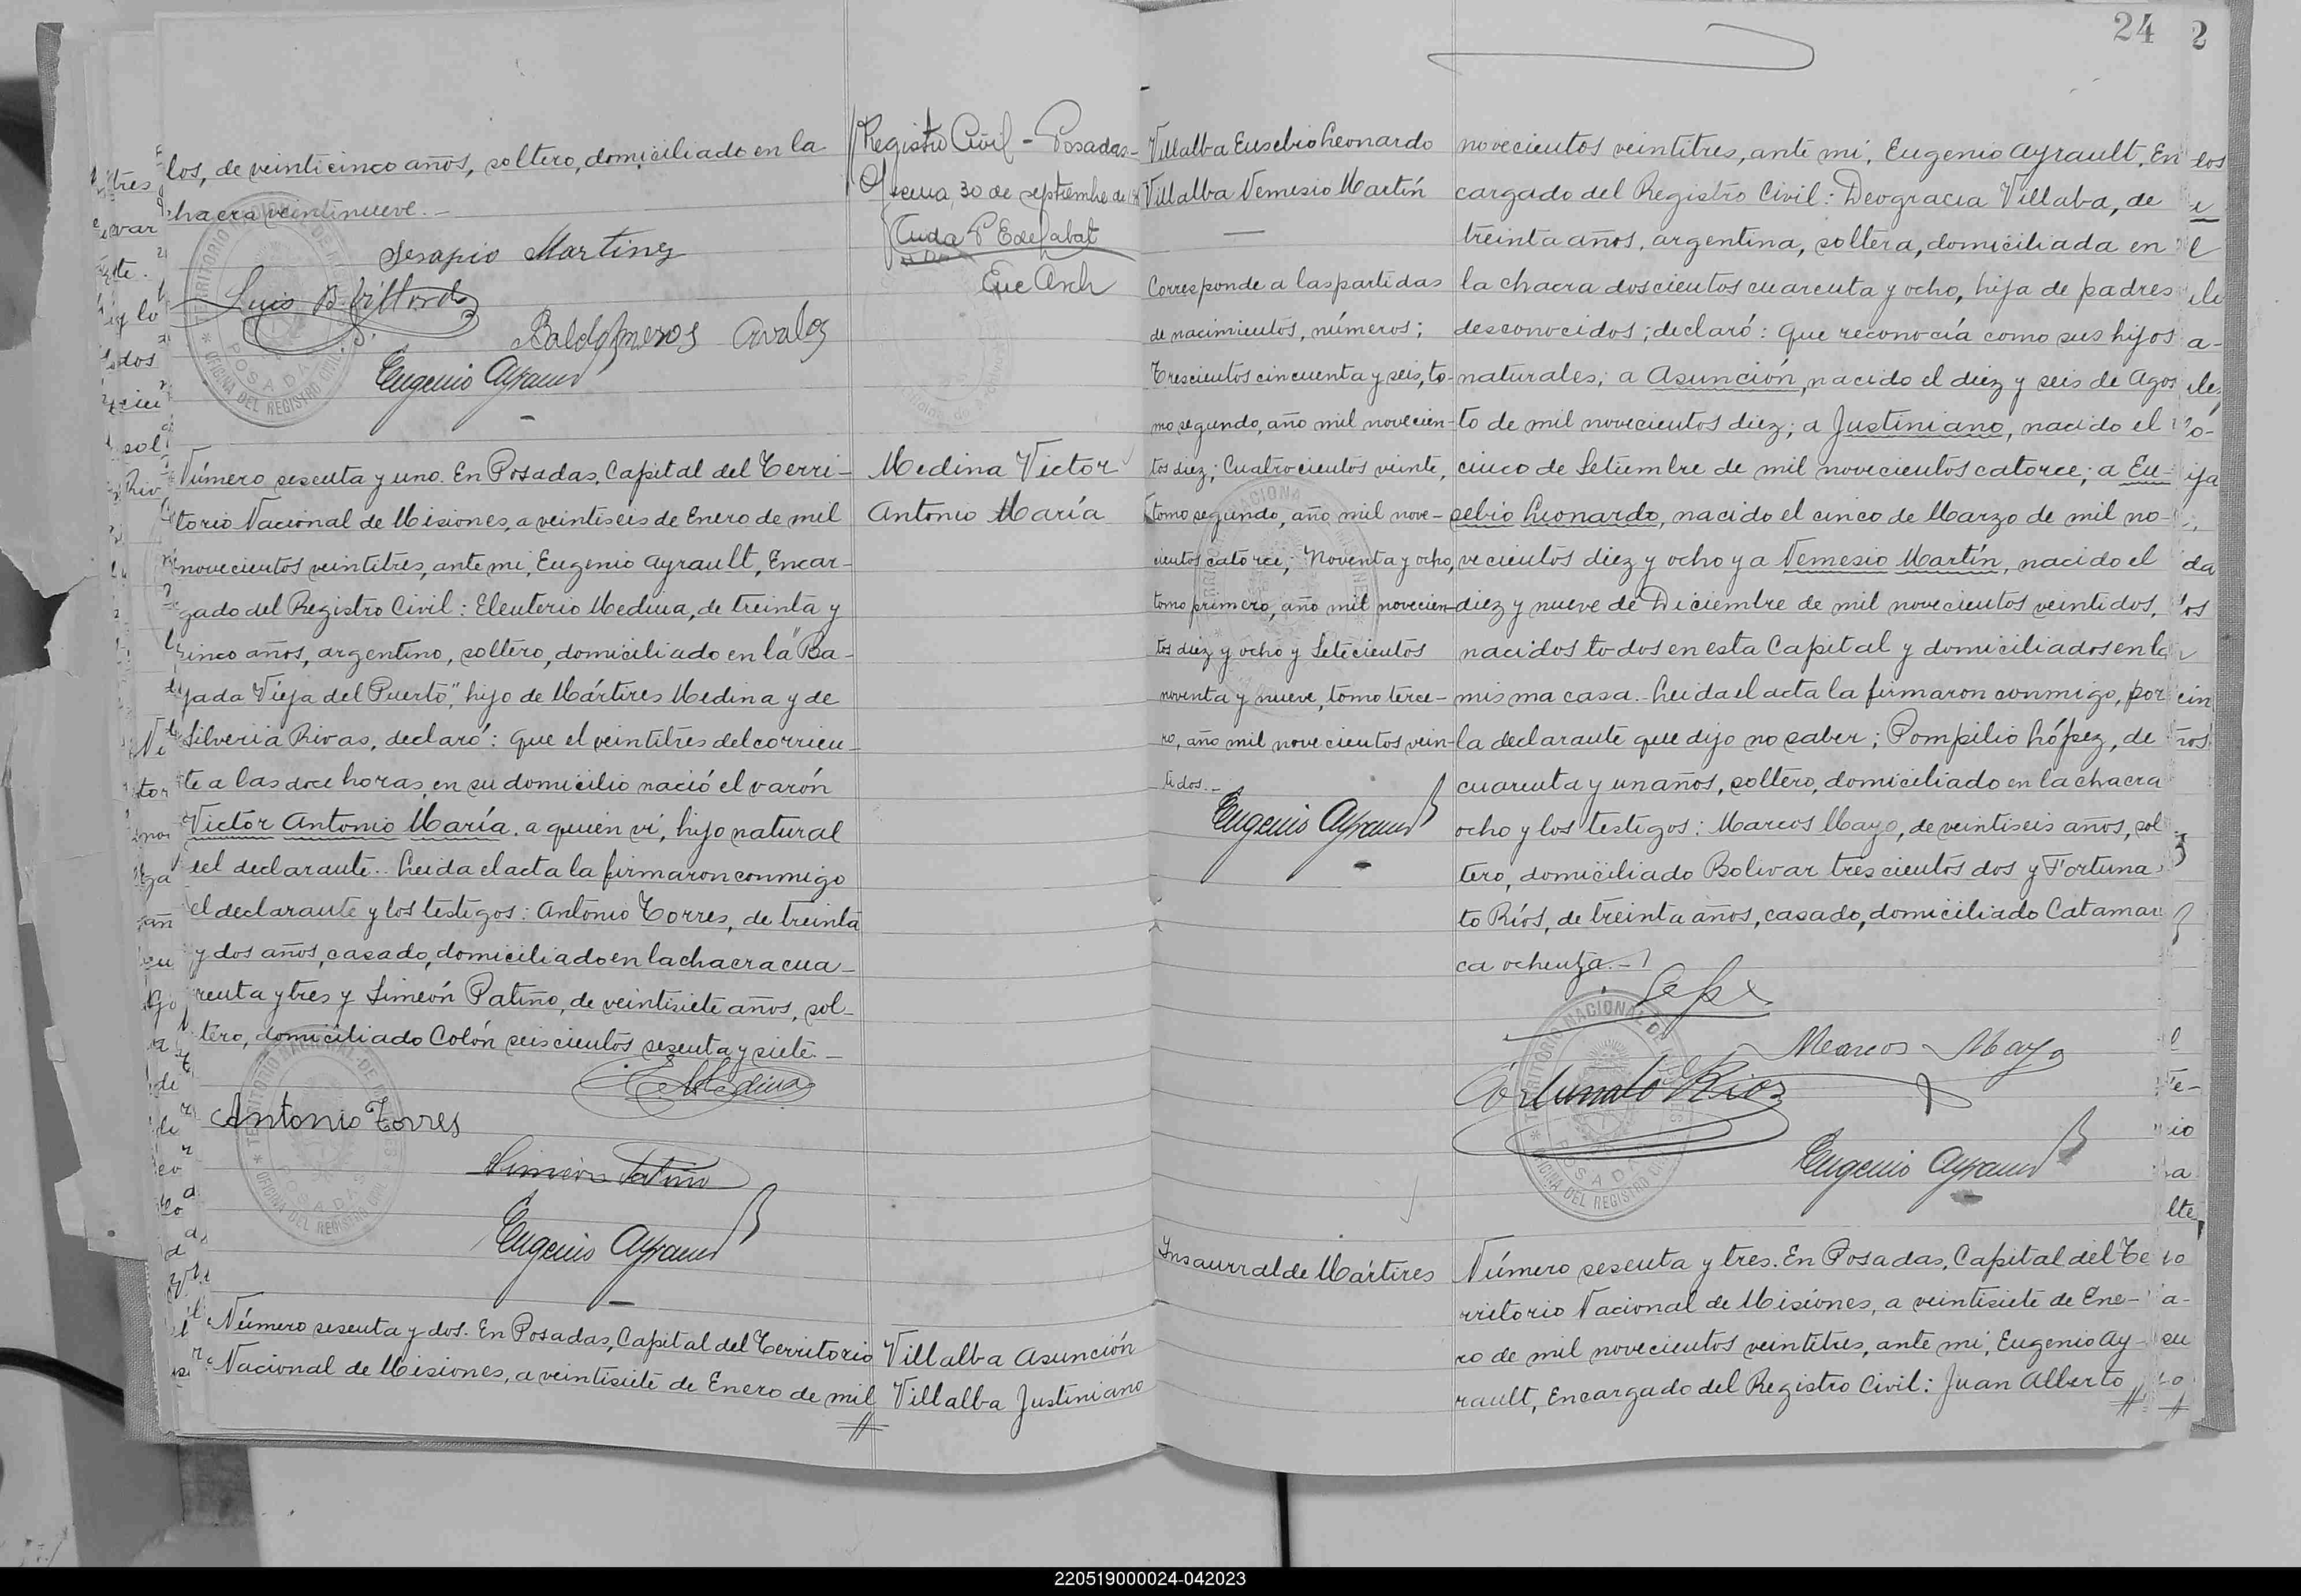 los, de veinticinco años, soltero, domiciliado en la
chacra veintinueve.—
Serapio Martinez
Luis B.
Baldomeros Avalos
Eugenio Ayrault
Número sesenta y uno. En Posadas, Capital del Terri-
torio Nacional de Misiones, a veintiseis de Enero de mil
novecientos veintitres, ante mi, Eugenio Ayrault, Encar-
gado del Registro Civil: Eleuterio Medina, de treinta y
cinco años, argentino, soltero, domiciliado en la "Ba-
jada Vieja del Puerto", hijo de Mártires Medina y de
Silveria Rivas, declaró: Que el veintitres del corrien-
te a las doce horas, en su domicilio nació el varón
Victor Antonio María, a quien vi, hijo natural
del declarante.. Leida el acta la firmaron conmigo
el declarante y los testigos: Antonio Torres, de treinta
y dos años, casado, domiciliado en la chacra cua-
renta y tres y Simeón Patiño, de veintisiete años, sol-
tero, domiciliado Colón seiscientos sesenta y siete.—
E Medina
Antonio Torres
Simeón Patiño
Eugenio Ayrault
Número sesenta y dos. En Posadas, Capital del Territorio
Nacional de Misiones, a veintisiete de Enero de mil
Registro Civil - Posadas-
30 de septiembre de
Medina Victor
Antonio María
Villalba Asunción
Villalba Justiniano
24 2
Villalba Eusebio Leonardo
Villalba Nemesio Martín
—
Corresponde a las partidas
de nacimientos, números;
Trescientos cincuenta y seis, to-
mo segundo, año mil novecien-
tos diez; Cuatrocientos veinte,
tomo segundo, año mil nove-
cientos catorce; Noventa y ocho,
tomo primero, año mil novecien-
tos diez y ocho y Setecientos
noventa y nueve, tomo terce-
ro, año mil novecientos vein-
tidos.—
Eugenio Ayrault
Insaurralde Mártires
novecientos veintitres, ante mi, Eugenio Ayrault, En
cargado del Registro Civil: Deogracia Villaba, de
treinta años, argentina, soltera, domiciliada en
la chacra doscientos cuarenta y ocho, hija de padres
desconocidos; declaró: Que reconocía como sus hijos
naturales; a Asunción, nacido el diez y seis de Agos
to de mil novecientos diez; a Justiniano, nacido el
cinco de Setiembre de mil novecientos catorce; a Eu-
sebio Leonardo, nacido el cinco de Marzo de mil no-
vecientos diez y ocho y a Nemesio Martín, nacido el
diez y nueve de Diciembre de mil novecientos veintidos,
nacidos todos en esta Capital y domiciliados en la
misma casa.- Leida el acta la firmaron conmigo, por
la declarante que dijo no saber; Pompilio López, de
cuarenta y un años, soltero, domiciliado en la chacra
ocho y los testigos: Marcos Mayo, de veintiseis años, sol
tero, domiciliado Bolivar trescientos dos y Fortuna-
to Ríos, de treinta años, casado, domiciliado Catamar
ca ochenta.—
Marcos Mayo
Fortunato Rios
Eugenio Ayrault
Número sesenta y tres. En Posadas, Capital del Te
rritorio Nacional de Misiones, a veintisiete de Ene-
ro de mil novecientos veintitres, ante mi, Eugenio Ay-
rault, Encargado del Registro Civil: Juan Alberto
220519000024-042023